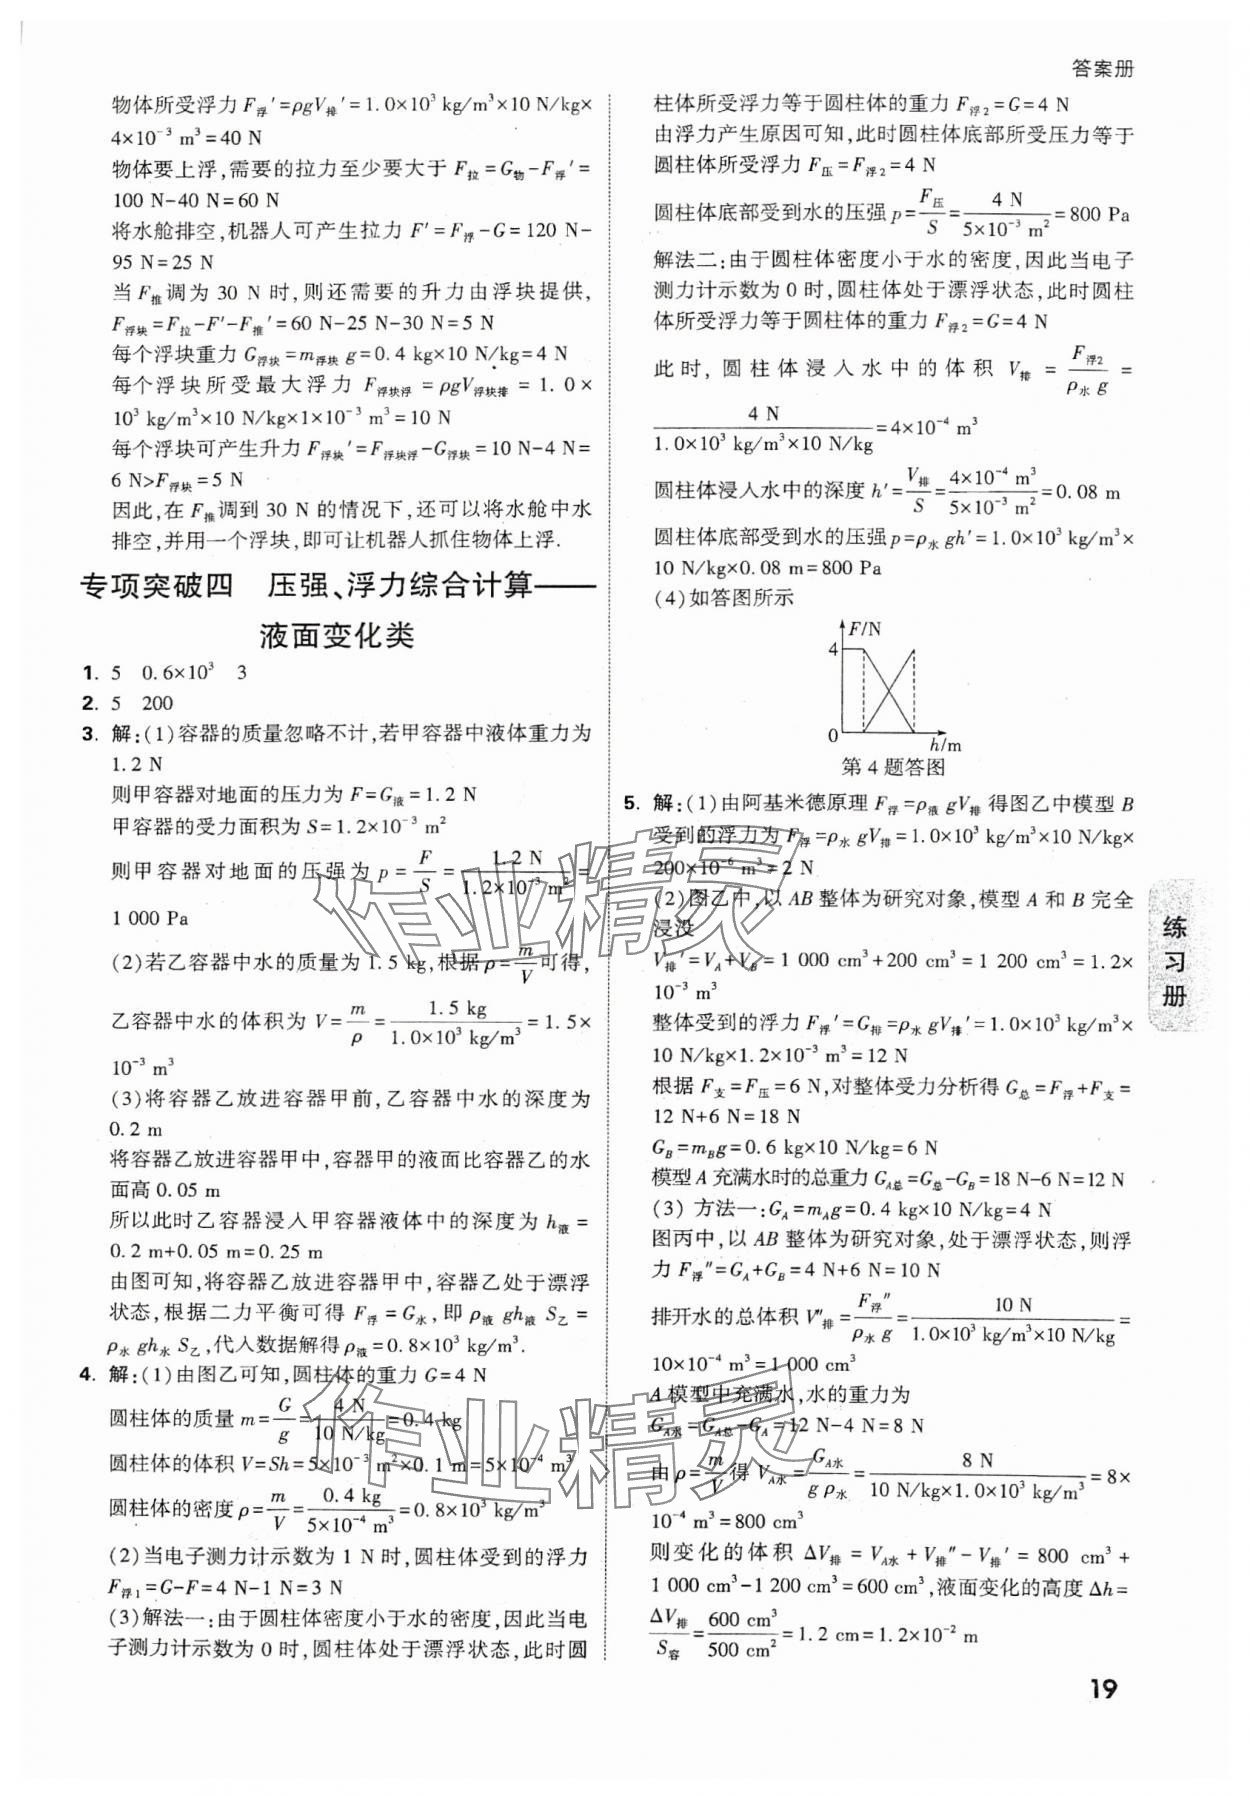 答案册
物体所受浮力 F浮′=ρgV排′=1.0×10³ kg/m³×10 N/kg×
4×10⁻³ m³=40 N
物体要上浮,需要的拉力至少要大于 F拉=G物-F浮′=
100 N-40 N=60 N
将水舱排空,机器人可产生拉力 F′=F浮-G=120 N-
95 N=25 N
当 F推调为 30 N 时,则还需要的升力由浮块提供,
F浮块=F拉-F′-F推′=60 N-25 N-30 N=5 N
每个浮块重力 G浮块=m浮块 g=0.4 kg×10 N/kg=4 N
每个浮块所受最大浮力 F浮块浮=ρgV浮块排=1.0×
10³ kg/m³×10 N/kg×1×10⁻³ m³=10 N
每个浮块可产生升力 F浮块′=F浮块浮-G浮块=10 N-4 N=
6 N>F浮块=5 N
因此,在 F推调到 30 N 的情况下,还可以将水舱中水
排空,并用一个浮块,即可让机器人抓住物体上浮.
专项突破四 压强、浮力综合计算——
液面变化类
1. 5 0.6×10³ 3
2. 5 200
3. 解:(1)容器的质量忽略不计,若甲容器中液体重力为
1.2 N
则甲容器对地面的压力为 F=G液=1.2 N
甲容器的受力面积为 S=1.2×10⁻³ m²
则甲容器对地面的压强为 p=F/S=1.2 N/1.2×10⁻³ m²=
1 000 Pa
(2)若乙容器中水的质量为 1.5 kg,根据 ρ=m/V可得,
乙容器中水的体积为 V=m/ρ=1.5 kg/1.0×10³ kg/m³=1.5×
10⁻³ m³
(3)将容器乙放进容器甲前,乙容器中水的深度为
0.2 m
将容器乙放进容器甲中,容器甲的液面比容器乙的水
面高 0.05 m
所以此时乙容器浸入甲容器液体中的深度为 h液=
0.2 m+0.05 m=0.25 m
由图可知,将容器乙放进容器甲中,容器乙处于漂浮
状态,根据二力平衡可得 F浮=G水,即 ρ液 gh液 S乙=
ρ水 gh水 S乙,代入数据解得 ρ液=0.8×10³ kg/m³.
4. 解:(1)由图乙可知,圆柱体的重力 G=4 N
圆柱体的质量 m=G/g=4 N/10 N/kg=0.4 kg
圆柱体的体积 V=Sh=5×10⁻³ m²×0.1 m=5×10⁻⁴ m³
圆柱体的密度 ρ=m/V=0.4 kg/5×10⁻⁴ m³=0.8×10³ kg/m³
(2)当电子测力计示数为 1 N 时,圆柱体受到的浮力
F浮1=G-F=4 N-1 N=3 N
(3)解法一:由于圆柱体密度小于水的密度,因此当电
子测力计示数为 0 时,圆柱体处于漂浮状态,此时圆
柱体所受浮力等于圆柱体的重力 F浮2=G=4 N
由浮力产生原因可知,此时圆柱体底部所受压力等于
圆柱体所受浮力 F压=F浮2=4 N
圆柱体底部受到水的压强 p=F压/S=4 N/5×10⁻³ m²=800 Pa
解法二:由于圆柱体密度小于水的密度,因此当电子
测力计示数为 0 时,圆柱体处于漂浮状态,此时圆柱
体所受浮力等于圆柱体的重力 F浮2=G=4 N
此时,圆柱体浸入水中的体积 V排=F浮2/ρ水 g=
4 N/1.0×10³ kg/m³×10 N/kg=4×10⁻⁴ m³
圆柱体浸入水中的深度 h′=V排/S=4×10⁻⁴ m³/5×10⁻³ m²=0.08 m
圆柱体底部受到水的压强 p=ρ水 gh′=1.0×10³ kg/m³×
10 N/kg×0.08 m=800 Pa
(4)如答图所示
F/N
4
0
h/m
第 4 题答图
5. 解:(1)由阿基米德原理 F浮=ρ液 gV排 得图乙中模型 B
受到的浮力为 F浮=ρ水 gV排=1.0×10³ kg/m³×10 N/kg×
200×10⁻⁶ m³=2 N
(2)图乙中,以 AB 整体为研究对象,模型 A 和 B 完全
浸没
V排′=VA+VB=1 000 cm³+200 cm³=1 200 cm³=1.2×
10⁻³ m³
整体受到的浮力 F浮′=G排=ρ水 gV排′=1.0×10³ kg/m³×
10 N/kg×1.2×10⁻³ m³=12 N
根据 F支=F压=6 N,对整体受力分析得 G总=F浮+F支=
12 N+6 N=18 N
GB=mBg=0.6 kg×10 N/kg=6 N
模型 A 充满水时的总重力 GA总=G总-GB=18 N-6 N=12 N
(3) 方法一:GA=mAg=0.4 kg×10 N/kg=4 N
图丙中,以 AB 整体为研究对象,处于漂浮状态,则浮
力 F浮″=GA+GB=4 N+6 N=10 N
排开水的总体积 V″排=F浮″/ρ水 g=10 N/1.0×10³ kg/m³×10 N/kg=
10×10⁻⁴ m³=1 000 cm³
A 模型中充满水,水的重力为
GA水=GA总-GA=12 N-4 N=8 N
由 ρ=m/V得 VA水=GA水/g ρ水=8 N/10 N/kg×1.0×10³ kg/m³=8×
10⁻⁴ m³=800 cm³
则变化的体积 ΔV排=VA水+V排″-V排′=800 cm³+
1 000 cm³-1 200 cm³=600 cm³,液面变化的高度 Δh=
ΔV排/S容=600 cm³/500 cm²=1.2 cm=1.2×10⁻² m
练习册
19
作业精灵
作业精灵